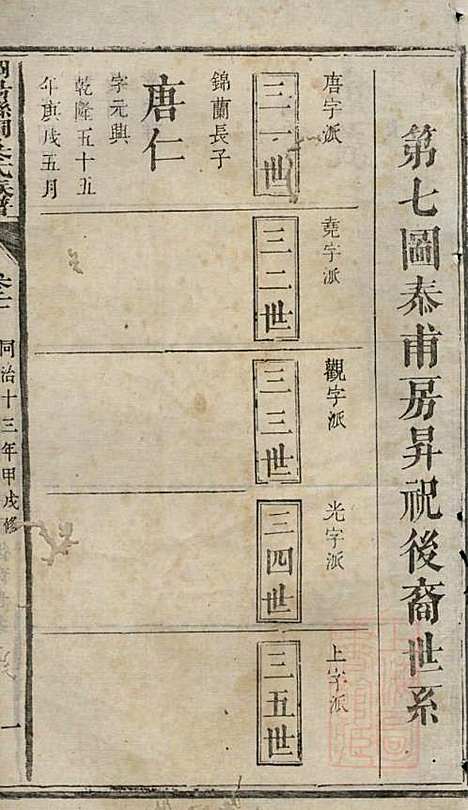 第七圖泰甫房昇祝後裔世系
唐字派
三一世
錦蘭長子
唐仁
字元興
乾隆五十五
年庚戌五月
堯字派
三二世
觀字派
三三世
光字派
三四世
上字派
三五世
同治十三年甲戌修
一